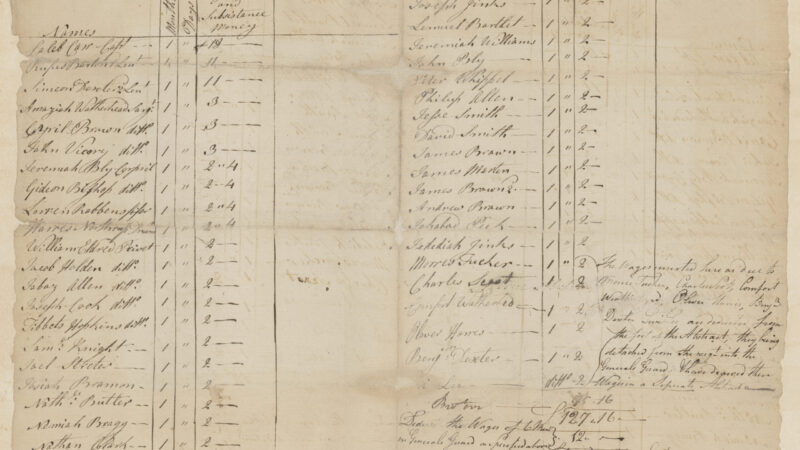 Names
Months
Days
and Subsistance Money
Caleb Carr Capt 1 " 18
Rufus Barton Lieut 1 " 11
Simeon Lieut 1 " 11
Amaziah Weatherhead Serjt 1 " 3
Cypril Brown ditto 1 " 3
John Vicory ditto 1 " 3
Jeremiah Bly Corporl 1 " 2 " 4
Gideon Bishop ditto 1 " 2 " 4
Loren Robbens fifer 1 " 2 " 4
Northrop 1 " 2 " 4
William Eldred Privet 1 " 2
Jacob Holden ditto 1 " 2
Jabez Allen ditto 1 " 2
Joseph Cook ditto 1 " 2
Tibbets Hopkins ditto 1 " 2
Saml Knight 1 " 2
Joel Steeler 1 " 2
Josiah Bramon 1 " 2
Nathl Butler 1 " 2
Nemiah Bragg 1 " 2
Nathan Clark 1 " 2
Joseph Jinks
Lemuel Bartlet 1 " 2
Jeremiah Williams 1 " 2
John Bly 1 " 2
Peter Whippel 1 " 2
Philip Allen 1 " 2
Jesse Smith 1 " 2
David Smith 1 " 2
James Brown 1 " 2
James Martin 1 " 2
James Brown 2 1 " 2
Andrew Brown 1 " 2
Ichabod Peck 1 " 2
Jedediah Jinks 1 " 2
Morres Tucker 1 " 2
Charles 1 " 2
Comfort Wetherhed 1 " 2
Oliver Howes 1 " 2
Benj Dexter 1 " 2
The Wages inserted here as due to
Morris Tucker, Charles Comfort
Weath Oliver Benj
Dexter from
the foot of the Abstract, they being
detached from the regt into the
Generals Guard I have drawn their
Wages in a Seperate Abstract
16
127 " 16
Deduct the Wages of 6 Men
in Generals Guard as above 12